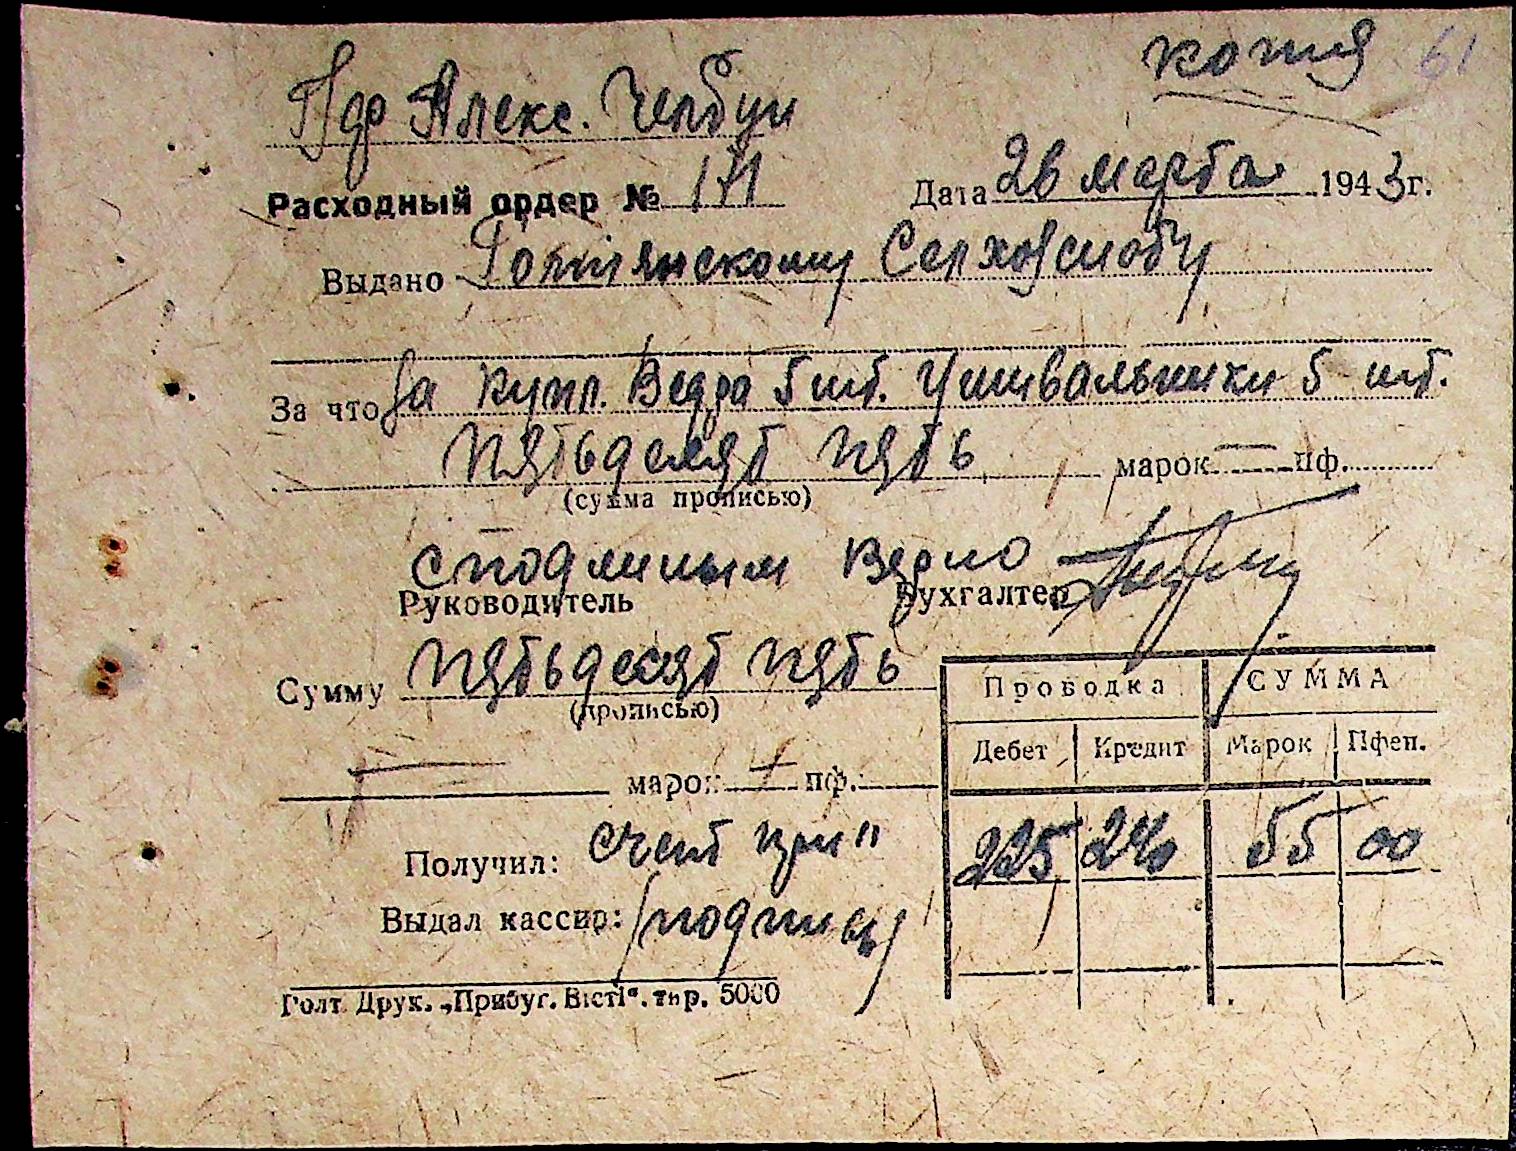 копия 61
Пдр Алекс. Челбуи
Расходный ордер № 171 Дата 26 марта 1943 г.
Выдано Голтянскому Селхозснобу
За что За купл. Ведра 5 шт. Умывальники 5 шт.
Пятьдесят пять марок — пф.
(сумма прописью)
с подлиным верно
Руководитель Бухгалтер
Сумму Пятьдесят пять
(прописью)
— марок — пф.
Проводка СУММА
Дебет Кредит Марок Пфен.
225 240 55 00
Получил: счет при"
Выдал кассир: (подпись)
Голт Друк. „Прибуг. Вісті“. тир. 5000